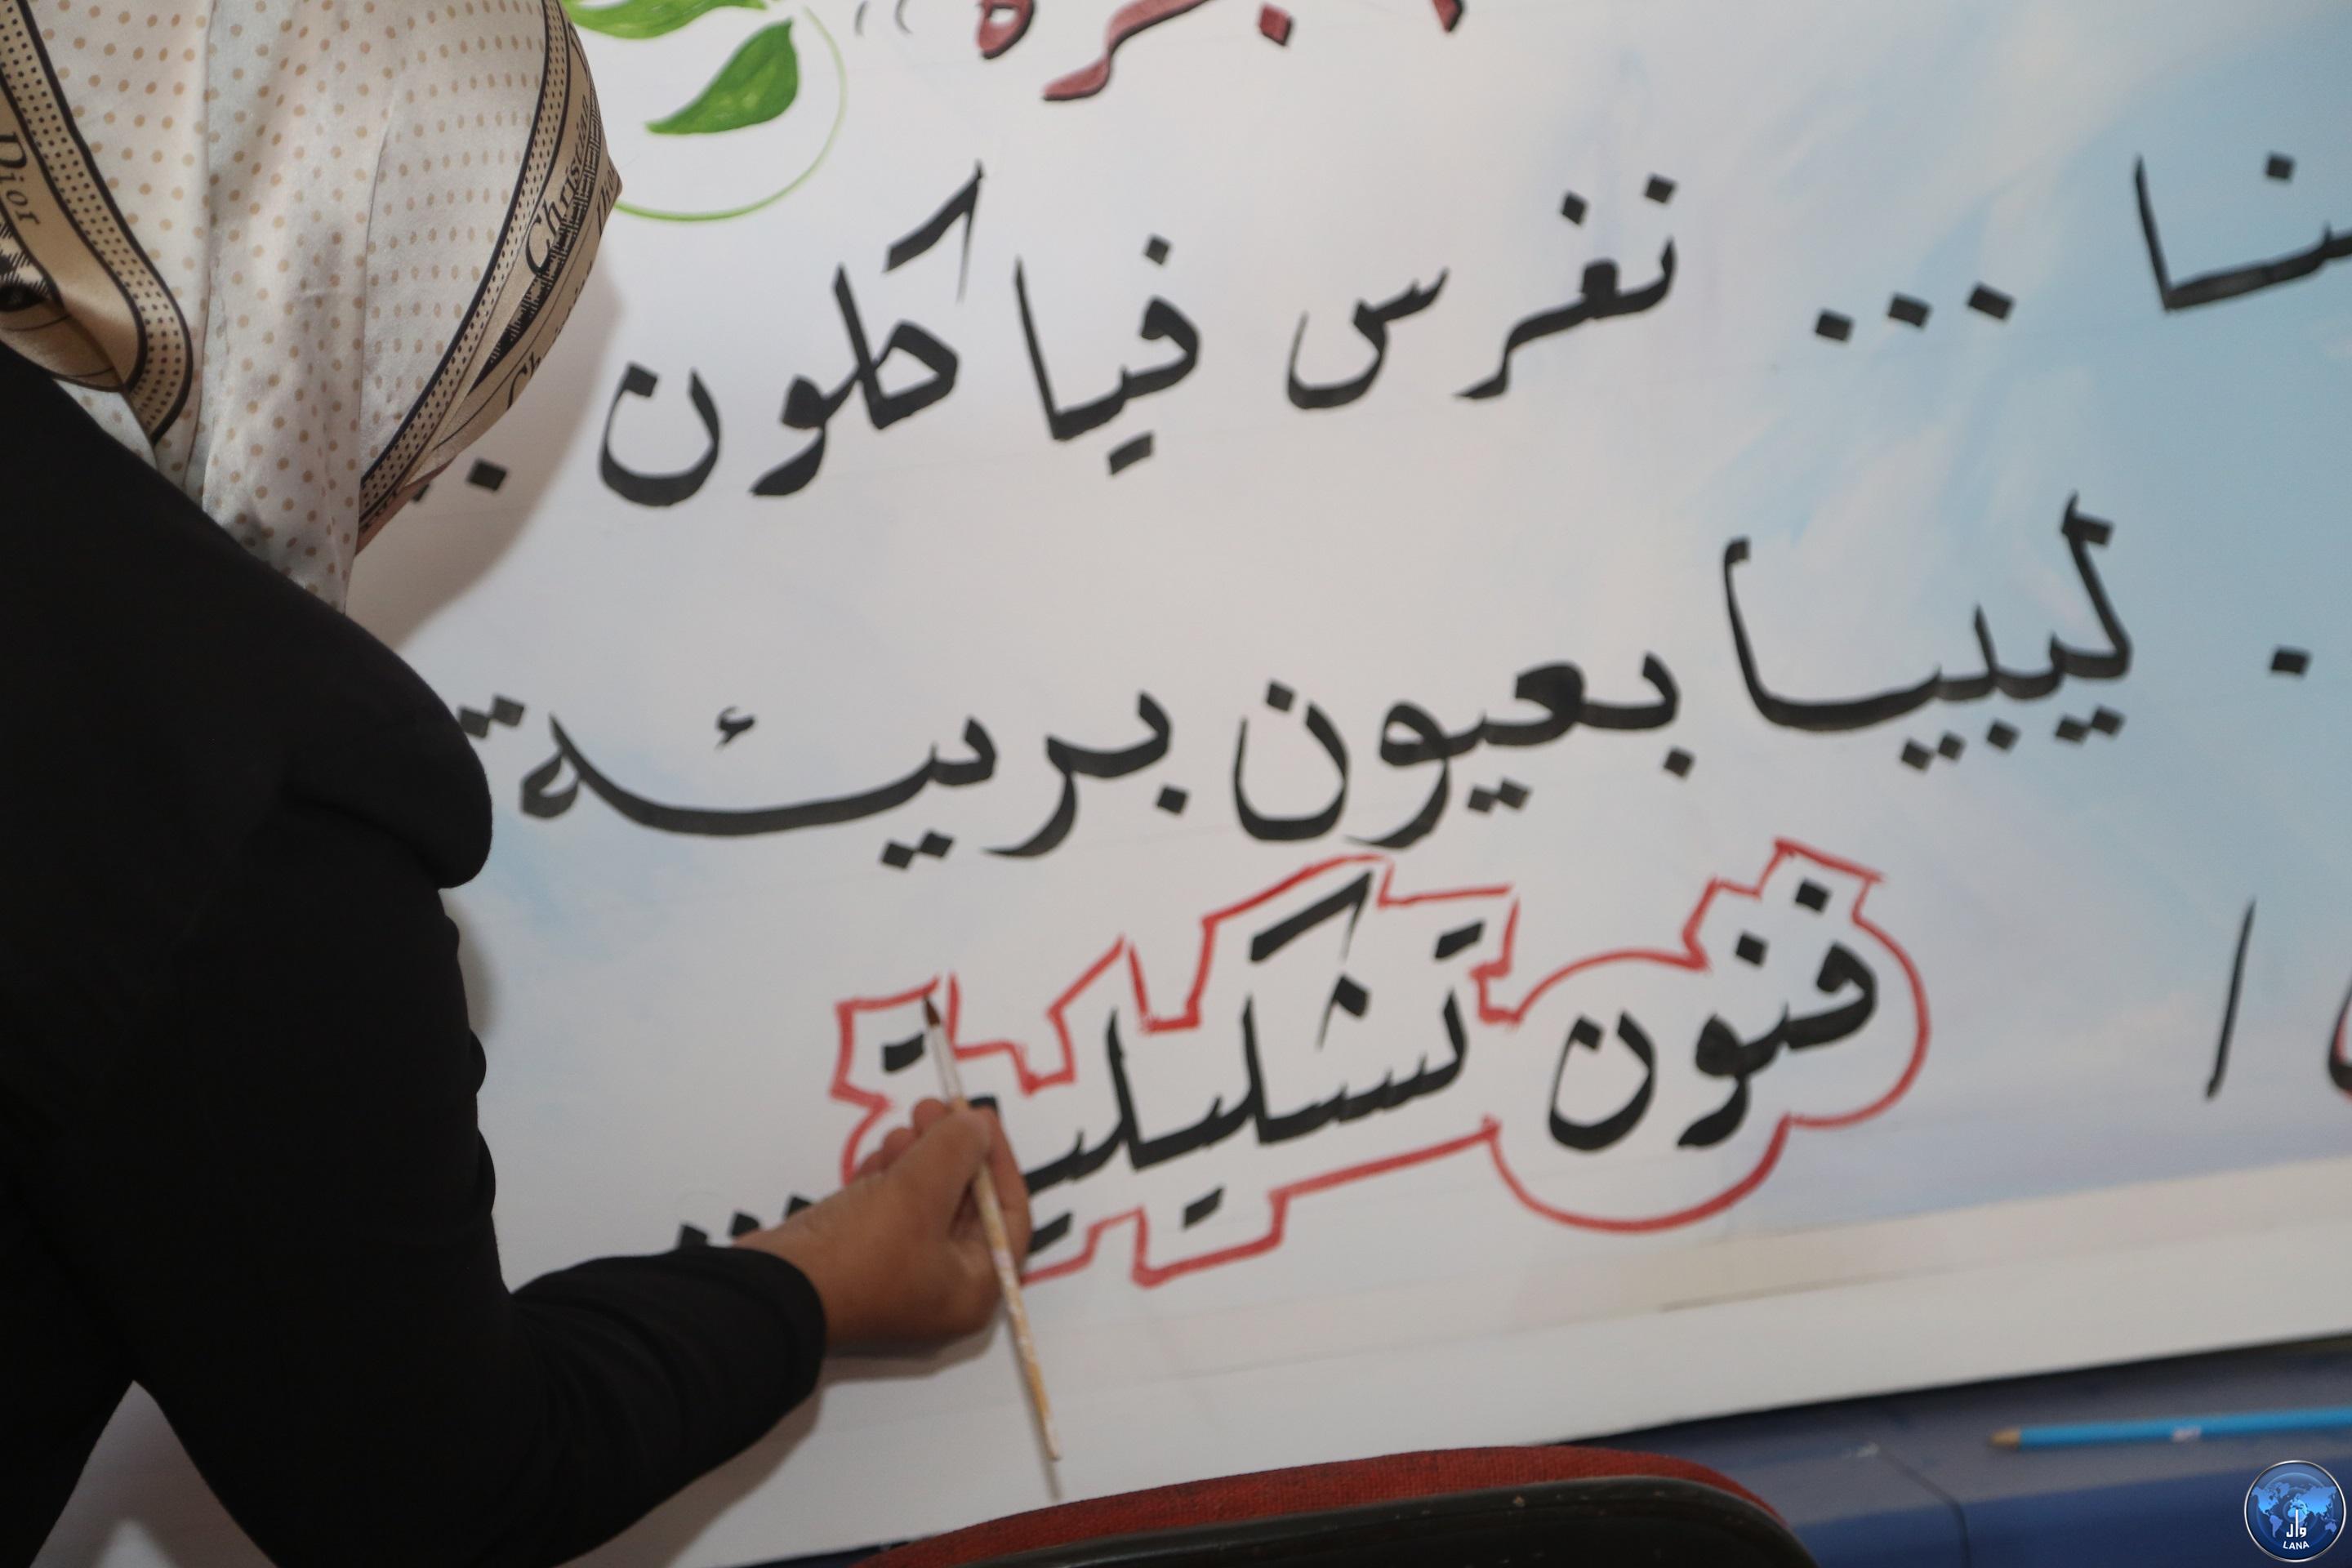 نا ... نغرس فيا كلون ..
. ليبيا بعيون بريئة
فنون تشكيلية ...
Dior
Christian
وال
LANA